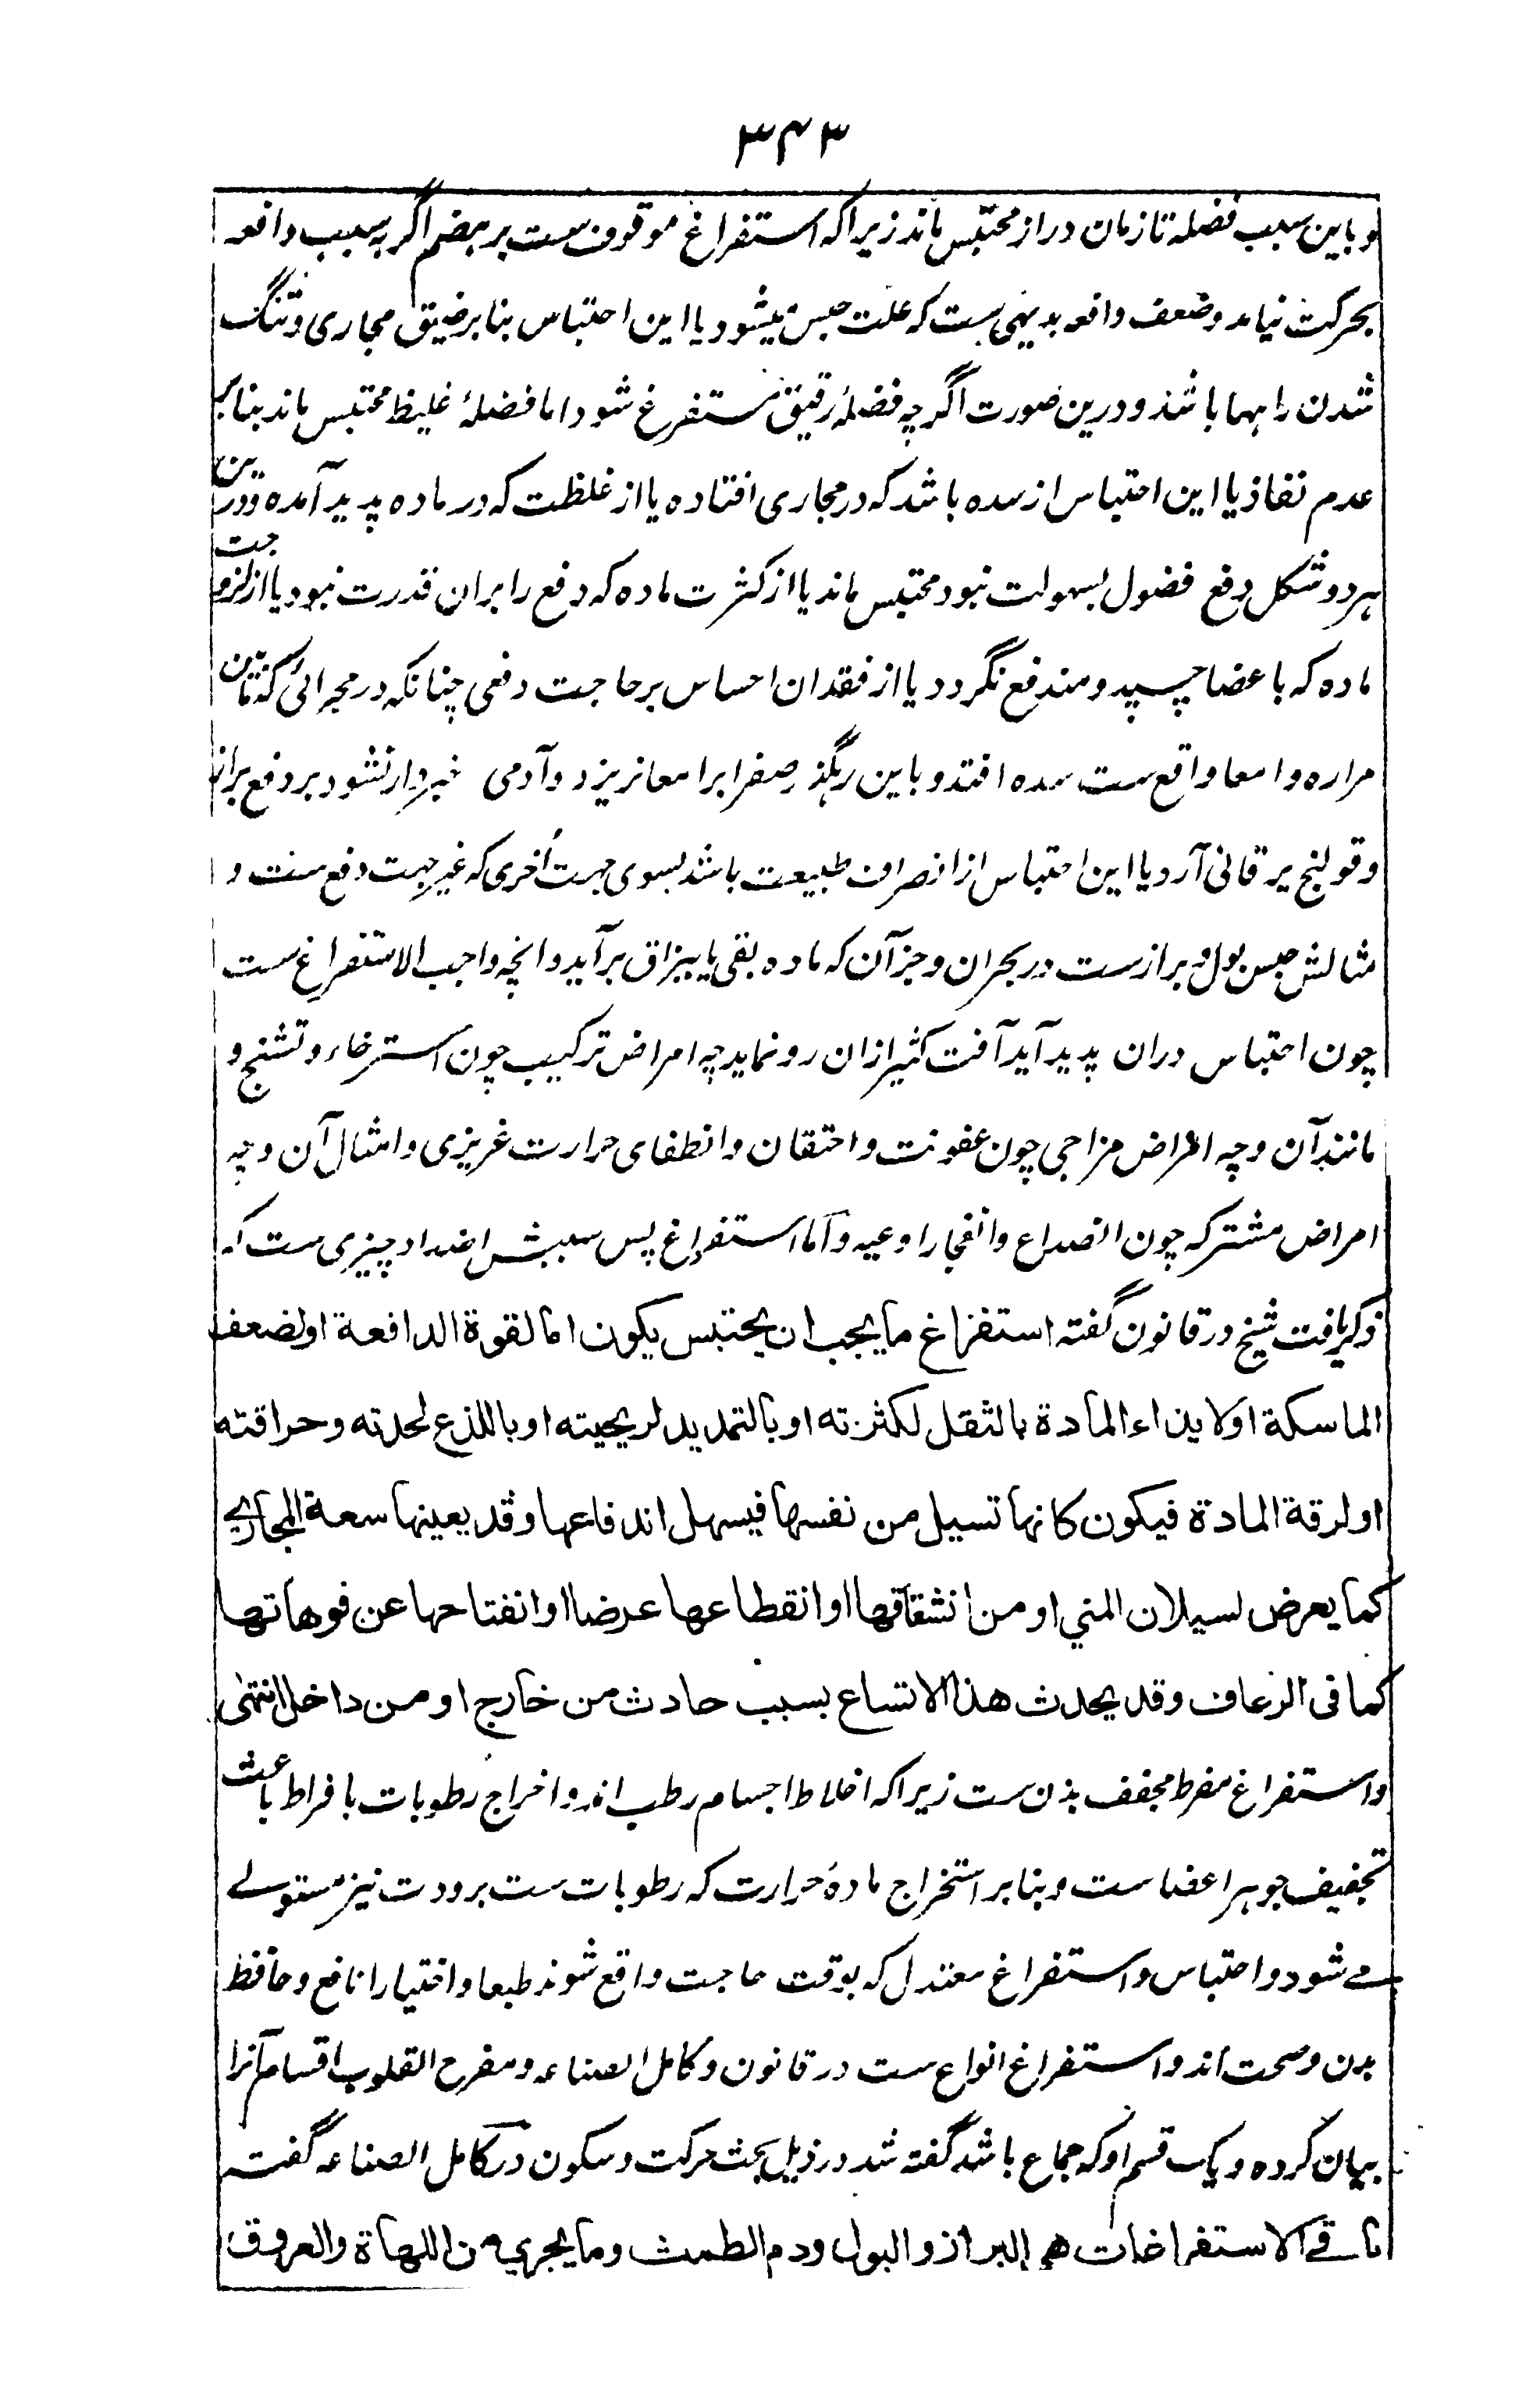 ۳۴۳
و باین سبب فضله تا زمان دراز محتبس ماند زیرا که استفراغ موقوف ست بر هضم اگر به سبب دافعه
بحرکت نیاید و ضعف دافعه بدیهی ست که علت حبس میشود یا این احتباس بنا بر ضیق مجاری و تنگ
شدن راهها باشد و درین صورت اگرچه فضلۀ رقیق مستفرغ شود اما فضلۀ غلیظ محتبس ماند بنا بر
عدم نفاذ یا این احتباس از سده باشد که در مجاری افتاده یا از غلظت که در ماده پدید آمده و درین
هر دو شکل دفع فضول بسهولت نبود محتبس ماند یا از کثرت ماده که دفع را بران قدرت نبود یا از لزوجت
ماده که باعضا چسپد و مندفع نگردد یا از فقدان احساس بر حاجت دفعی چنانکه در مجرائی که مابین
مراره و امعا واقع ست سده افتد و باین رهگذر صفرا برامعا نریزد و آدمی خبردار نشود بر دفع براز
و قولنج یرقانی آرد یا این احتباس از انصراف طبیعت باشد بسوی جهت اُخری که غیر جهت دفع ست و
مثالش حبس بول و براز ست در بحران و جز آن که ماده بقی یا ببزاق برآید و انچه واجب الاستفراغ ست
چون احتباس دران پدید آید آفت کثیر ازان رو نماید چه امراض ترکیب چون استرخاء و تشنج و
مانند آن و چه امراض مزاجی چون عفونت و احتقان و انطفای حرارت غریزی و امثال آن و چه
امراض مشترکه چون انصداع و انفجار اوعیه و اما استفراغ پس سببش اضداد چیزی ست که
ذکر یافت شیخ در قانون گفته استفراغ ما یجب ان یحتبس یکون اما لقوة الدافعة او لضعف
الماسکة او لایذاء المادة بالثقل لکثرته او بالتمدید لریحیته او باللذع لحدته و حراقته
او لرقة المادة فیکون کانها تسیل من نفسها فیسهل اندفاعها و قد یعینها سعة المجاری
کما یعرض لسیلان المنی او من انشقاقها او انقطاعها عرضا او انفتاحها عن فوهاتها
کما فی الرعاف و قد یحدث هذا الاتساع بسبب حادث من خارج او من داخل انتهی
و استفراغ مفرط مجفف بدن ست زیرا که اخلاط اجسام رطب اند و اخراج رطوبات بافراط باعث
تجفیف جوهر اعضا ست و بنا بر استخراج مادۀ حرارت که رطوبات ست برودت نیز مستولے
مے شود و احتباس و استفراغ معتدل که بوقت حاجت واقع شوند طبعا و اختیارا نافع و حافظ
بدن و صحت اند و استفراغ انواع ست در قانون و کامل الصناعه و مفرح القلوب اقسام آنرا
بیان کرده و یک قسم او که جماع باشد گفته شد در ذیل بحث حرکت و سکون در کامل الصناعه گفته
باقے الاستفراغات هو البراز و البول و دم الطمث و ما یجری من اللهاة و العروق